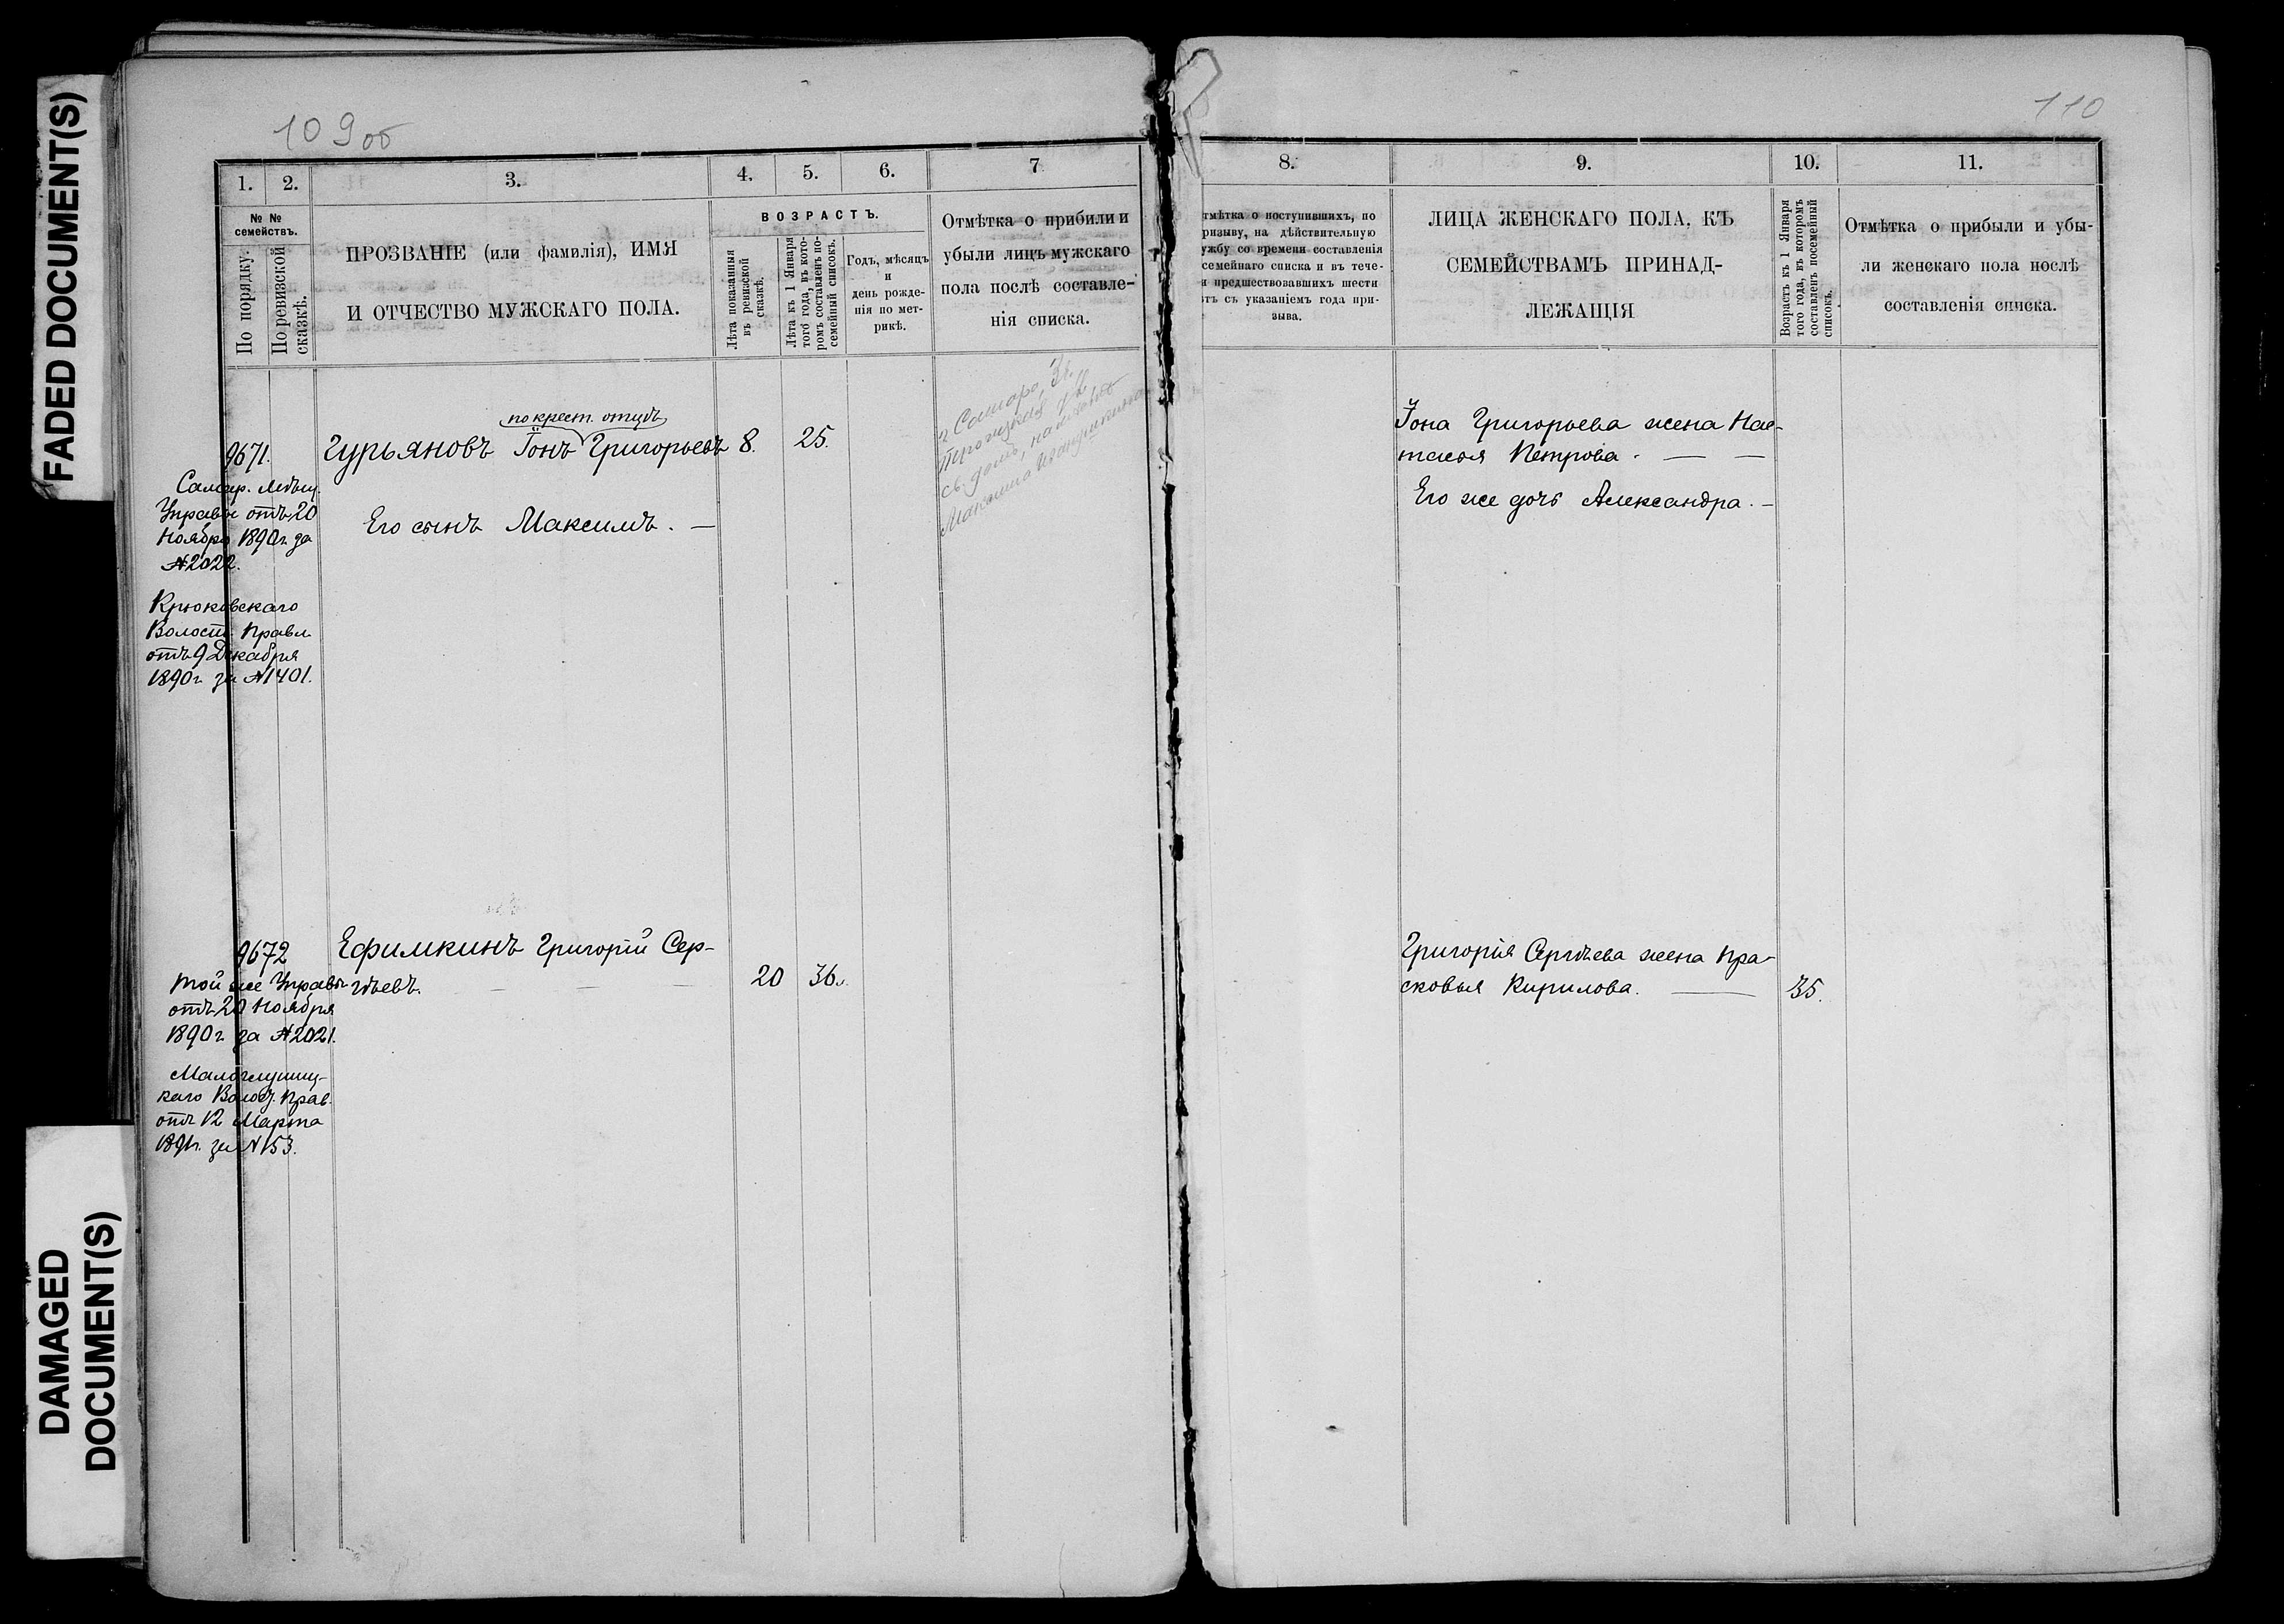 FADED DOCUMENT(S)
DAMAGED
DOCUMENT(S)
109об
1.
2.
3.
4.
5.
6.
7
№ №
семействъ.
По порядку.
По ревизской
сказкѣ.
ПРОЗВАНІЕ (или фамилія), ИМЯ
И ОТЧЕСТВО МУЖСКАГО ПОЛА.
ВОЗРАСТЪ.
Лѣта показанныя
въ ревизской
сказкѣ.
Лѣта къ 1 Января
того года, въ кото-
ромъ составленъ по-
семейный списокъ.
Годъ, мѣсяцъ
и
день рожде-
нія по мет-
рикѣ.
Отмѣтка о прибили и
убыли лицъ мужскаго
пола послѣ составле-
нія списка.
9671.
Самар. Мѣщ.
Управы отъ 20
Ноября 1890г. за
№2022.
Крюковскаго
Волост. Правл.
отъ 9 Декабря
1890г. за №1401.
по крест. отцъ
Гурьяновъ Іонъ Григорьевъ 8. 25.
Его сынъ Максимъ. —
г Самара,
Троицкая
съ. домъ,
Максима
9672
той же Управы
отъ 20 Ноября
1890г. за №2021.
Малоглушиц-
каго Волос. Прав.
отъ 12 Марта
1891г. за №153.
Ефимкинъ Григорій Сер-
гѣевъ. — — — 20 36.
110
8.
9.
10.
11.
тмѣтка о поступившихъ, по
ризыву, на дѣйствительную
ужбу со времени составленія
семейнаго списка и въ тече-
и предшествовавшихъ шести
тъ съ указаніемъ года при-
зыва.
ЛИЦА ЖЕНСКАГО ПОЛА, КЪ
СЕМЕЙСТВАМЪ ПРИНАД-
ЛЕЖАЩІЯ
Возрастъ къ 1 Января
того года, въ которомъ
составленъ посемейный
списокъ.
Отмѣтка о прибыли и убы-
ли женскаго пола послѣ
составленія списка.
Іона Григорьева жена Нас-
тасья Петрова. — —
Его же дочь Александра. —
Григорія Сергѣева жена Пра-
сковья Кирилова. — 35.